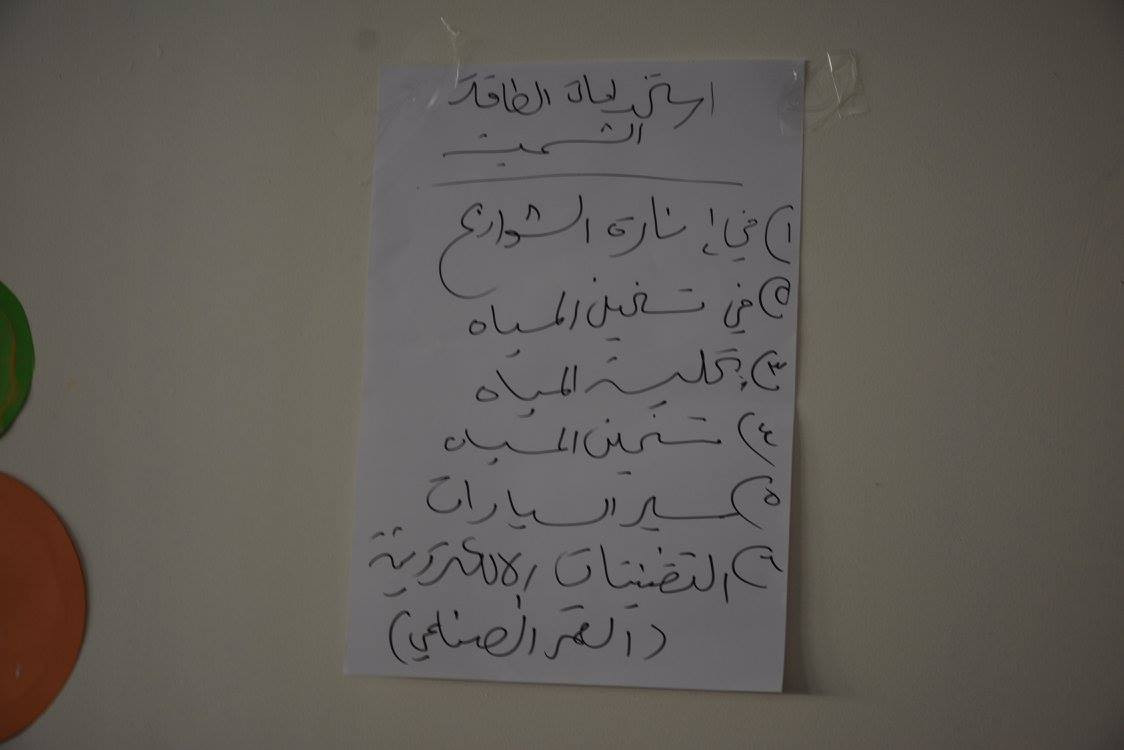 استخدامات الطاقة
الشمسية
١) في إنارة الشوارع
٢) في تسخين المياه
٣) تحلية المياه
٤) تسخين المياه
٥) سير السيارات
٦) التقنيات الالكترونية
(القمر الصناعي)